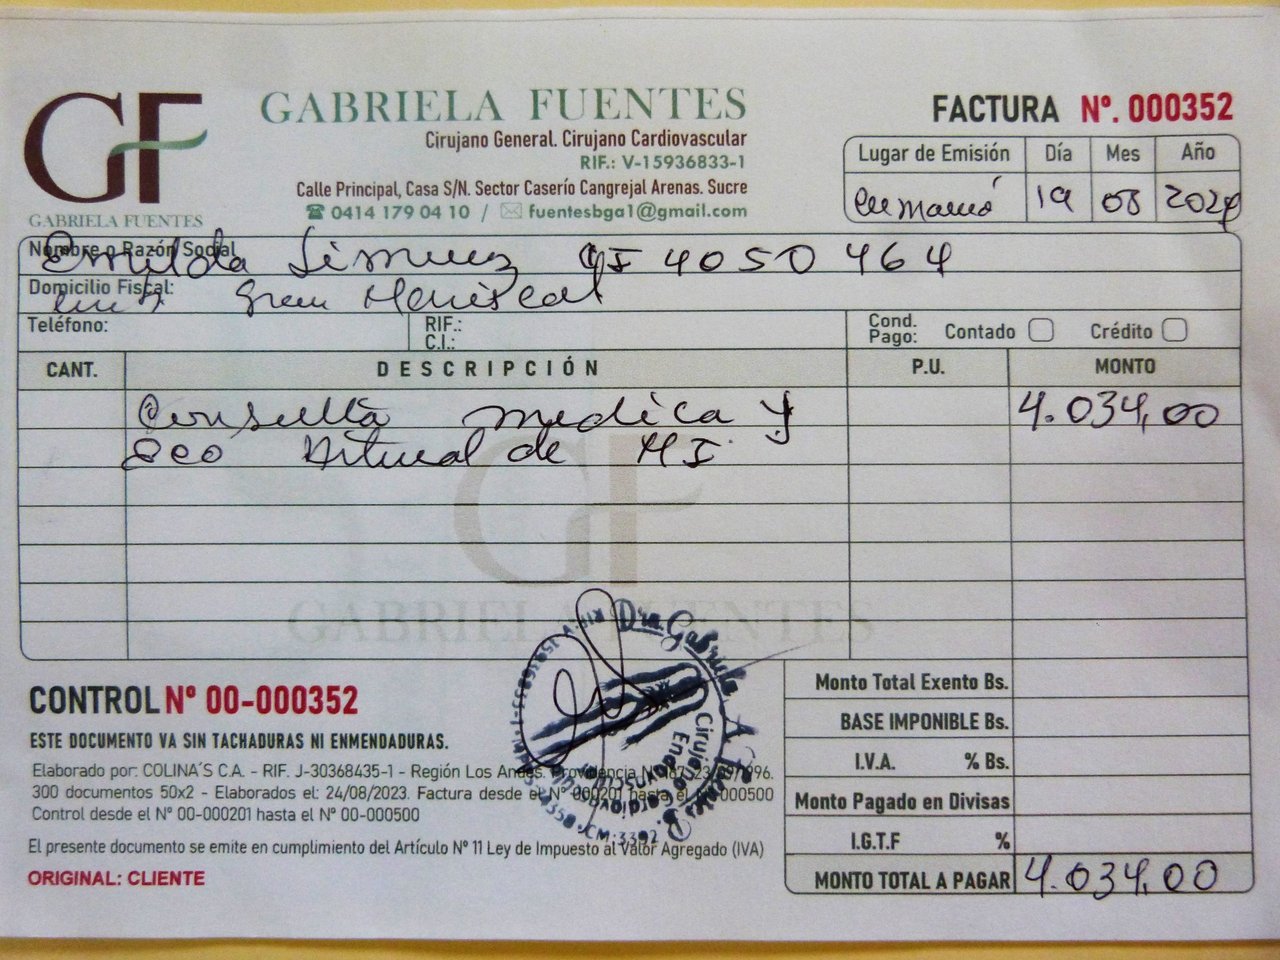 GF
GABRIELA FUENTES
GABRIELA FUENTES
Cirujano General. Cirujano Cardiovascular
RIF.: V-15936833-1
Calle Principal, Casa S/N. Sector Caserío Cangrejal Arenas. Sucre
0414 179 04 10 / fuentesbga1@gmail.com
FACTURA Nº. 000352
Lugar de Emisión Día Mes Año
19 08 2024
Nombre o Razón Social
CI 4050464
Domicilio Fiscal:
Gran Mariscal
Teléfono: RIF.: C.I.: Cond. Pago: Contado Crédito
CANT. DESCRIPCIÓN P.U. MONTO
Consulta medica y 4.034,00
eco de MI
GF
GABRIELA FUENTES
CONTROL Nº 00-000352
ESTE DOCUMENTO VA SIN TACHADURAS NI ENMENDADURAS.
Elaborado por: COLINA´S C.A. - RIF. J-30368435-1 - Región Los Andes. Providencia
300 documentos 50x2 - Elaborados el: 24/08/2023. Factura desde el Nº 000201 hasta el Nº 000500
Control desde el Nº 00-000201 hasta el Nº 00-000500
El presente documento se emite en cumplimiento del Artículo Nº 11 Ley de Impuesto al Valor Agregado (IVA)
ORIGINAL: CLIENTE
Dra. Gabriela A.
Cirujano Cardiovascular
Endovascular
Monto Total Exento Bs.
BASE IMPONIBLE Bs.
I.V.A. % Bs.
Monto Pagado en Divisas
I.G.T.F %
MONTO TOTAL A PAGAR 4.034,00